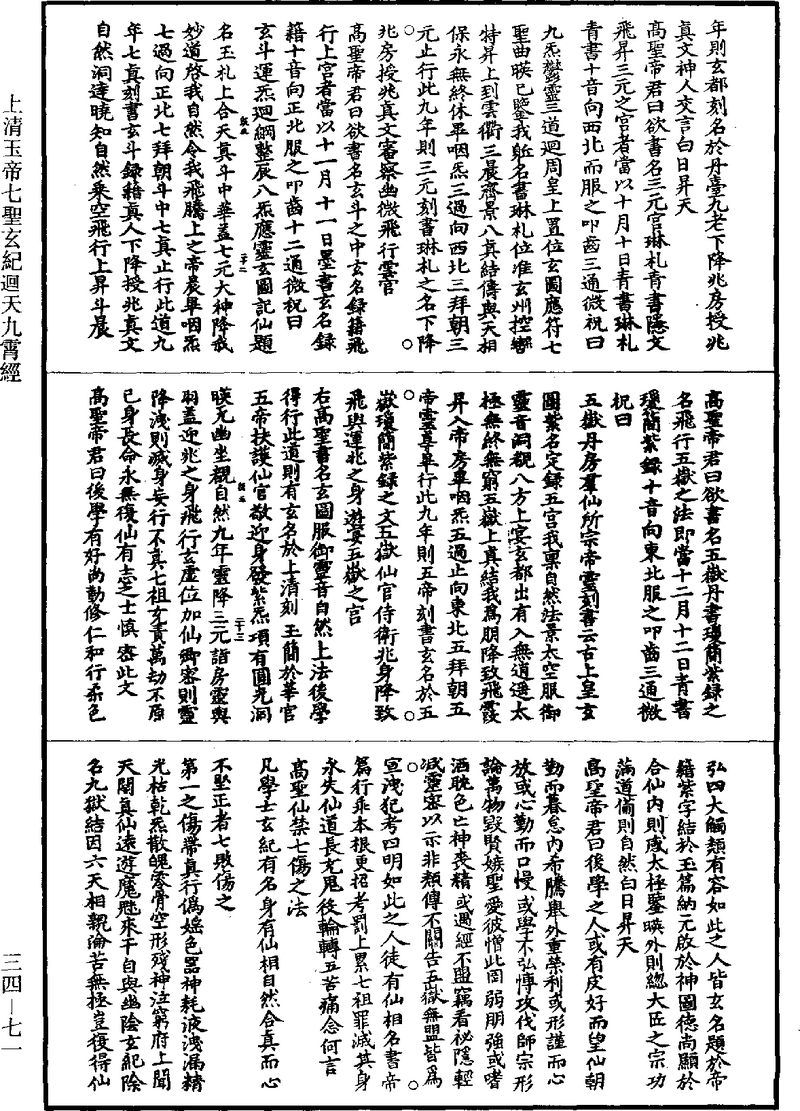 年則玄都刻名於丹臺九老下降兆房授兆
真文神人交言白日昇天
高聖帝君曰欲書名三元宮琳札青書隱文
飛昇三元之宮者當以十月十日青書琳札
青書十音向西北而服之叩齒三通微祝曰
九炁鬱靈三道迴周皇上置位玄圖應符七
聖曲暎已鑒我躯名書琳札位准玄州控轡
特昇上到雲衢三晨齊景八真結儔與天相
保永無終休畢咽炁三過向西北三拜朝三
元止行此九年則三元刻書琳札之名下降
兆房授兆真文審察幽微飛行雲宮
高聖帝君曰欲書名玄斗之中玄名録籍飛
行上宮者當以十一月十一日墨書玄名録
籍十音向正北服之叩齒十二通微祝曰
玄斗運炁迴綱整辰八炁應靈玄圖記仙題
名玉札上合天真斗中華蓋七元大神降我
妙道啓我自然令我飛騰上之帝晨畢咽炁
七過向正北七拜朝斗中七真止行此道九
年七真刻書玄斗録籍真人下降授兆真文
自然洞達曉知自然乘空飛行上昇斗晨
高聖帝君曰欲書名五嶽丹書瓊簡紫録之
名飛行五嶽之法即當十二月十二日青書
瓊簡紫録十音向東北服之叩齒三通微
祝曰
五嶽丹房羣仙所宗帝靈刻書云古上皇玄
圖紫名定録五宮我稟自然法景太空服御
靈音洞觀八方上宴玄都出有入無逍遥太
極無終無窮五嶽上真結我爲朋降致飛霞
昇入帝房畢咽炁五過止向東北五拜朝五
帝靈尊畢行此九年則五帝刻書玄名於五
嶽瓊簡紫録之文五嶽仙官侍衛兆身降致
飛輿運兆之身遊宴五嶽之宮
右高聖書名玄圖服御靈音自然上法後學
得行此道則有玄名於上清刻玉簡於華宮
五帝扶護仙官敬迎身發紫炁項有圓光洞
暎无幽坐觀自然九年靈降三元詣房靈輿
羽蓋迎兆之身飛行玄虚位加仙卿密則靈
降洩則滅身妄行不真七祖充責萬劫不原
己身長命永無復仙有志之士慎密此文
高聖帝君曰後學有好尚勤修仁和行柔色
弘四大觸類有容如此之人皆玄名題於帝
籍紫字結於玉篇納元啟於神圖德尚顯於
合仙內則感太極鑒暎外則總大臣之宗功
滿道備則自然白日昇天
高聖帝君曰後學之人或有皮好而望仙朝
勤而暮怠內希騰舉外重榮利或形謹而心
放或心勤而口慢或學不弘愽攻伐師宗形
論萬物毀賢嫉聖愛彼憎此囙弱朋強或嗜
酒耽色亡神喪精或遇經不盟竊看祕隱輕
滅靈審以示非類傳不關告五嶽無盟皆爲
宣洩犯考四明如此之人徒有仙相名書帝
篇行乖本根更招考罰上累七祖罪滅其身
永失仙道長充鬼役輪轉五苦痛念何言
高聖仙禁七傷之法
凡學士玄紀有名身有仙相自然合真而心
不堅正者七敗傷之
第一之傷帶真行僞婬色罢神耗液洩漏精
光枯乾炁散魄零骨空形殘神泣窮府上聞
天關真仙遠遊魔魅來干自與幽陰玄紀除
名九獄結因六天相親淪苦無極豈復得仙
上清玉帝七聖玄紀迴天九霄經
三四—七一